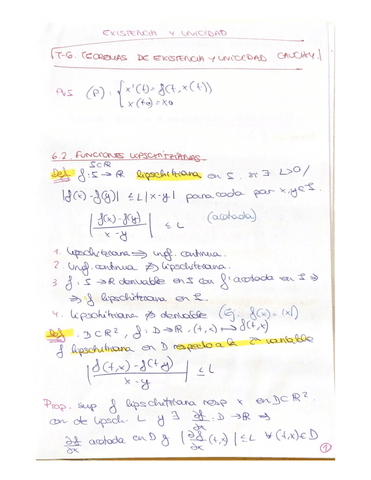 EXISTENCIA Y UNICIDAD
T-6. TEOREMAS DE EXISTENCIA Y UNICIDAD CAUCHY.
PVI (P): { x'(t) = f(t, x(t))
x(t0) = x0
6.2. FUNCIONES LIPSCHITZIANAS
S⊂R
Def f: S → R lipschitziana en S. si ∃ L>0 /
|f(x) - f(y)| ≤ L|x-y| para cada par x,y∈S.
| f(x)-f(y) / x-y | ≤ L (acotada)
1. Lipschitziana ⟹ unif. continua.
2. Unif. continua ⇏ lipschitziana.
3 f: S → R derivable en S con f' acotada en S ⟹
⟹ f lipschitziana en S.
4. Lipschitziana ⇏ derivable (Ej: f(x) = |x|)
Def. D⊂R², f: D → R. (t,x) ↦ f(t,x)
f lipschitziana en D respecto a la 2ª variable
| f(t,x) - f(t,y) / x-y | ≤ L
Prop. sup f lipschitziana resp x en D⊂R².
con cte lipsch. L y ∃ ∂f/∂x : D → R ⟹
∂f/∂x acotada en D y | ∂f/∂x (t,x) | ≤ L ∀ (t,x)∈D
1